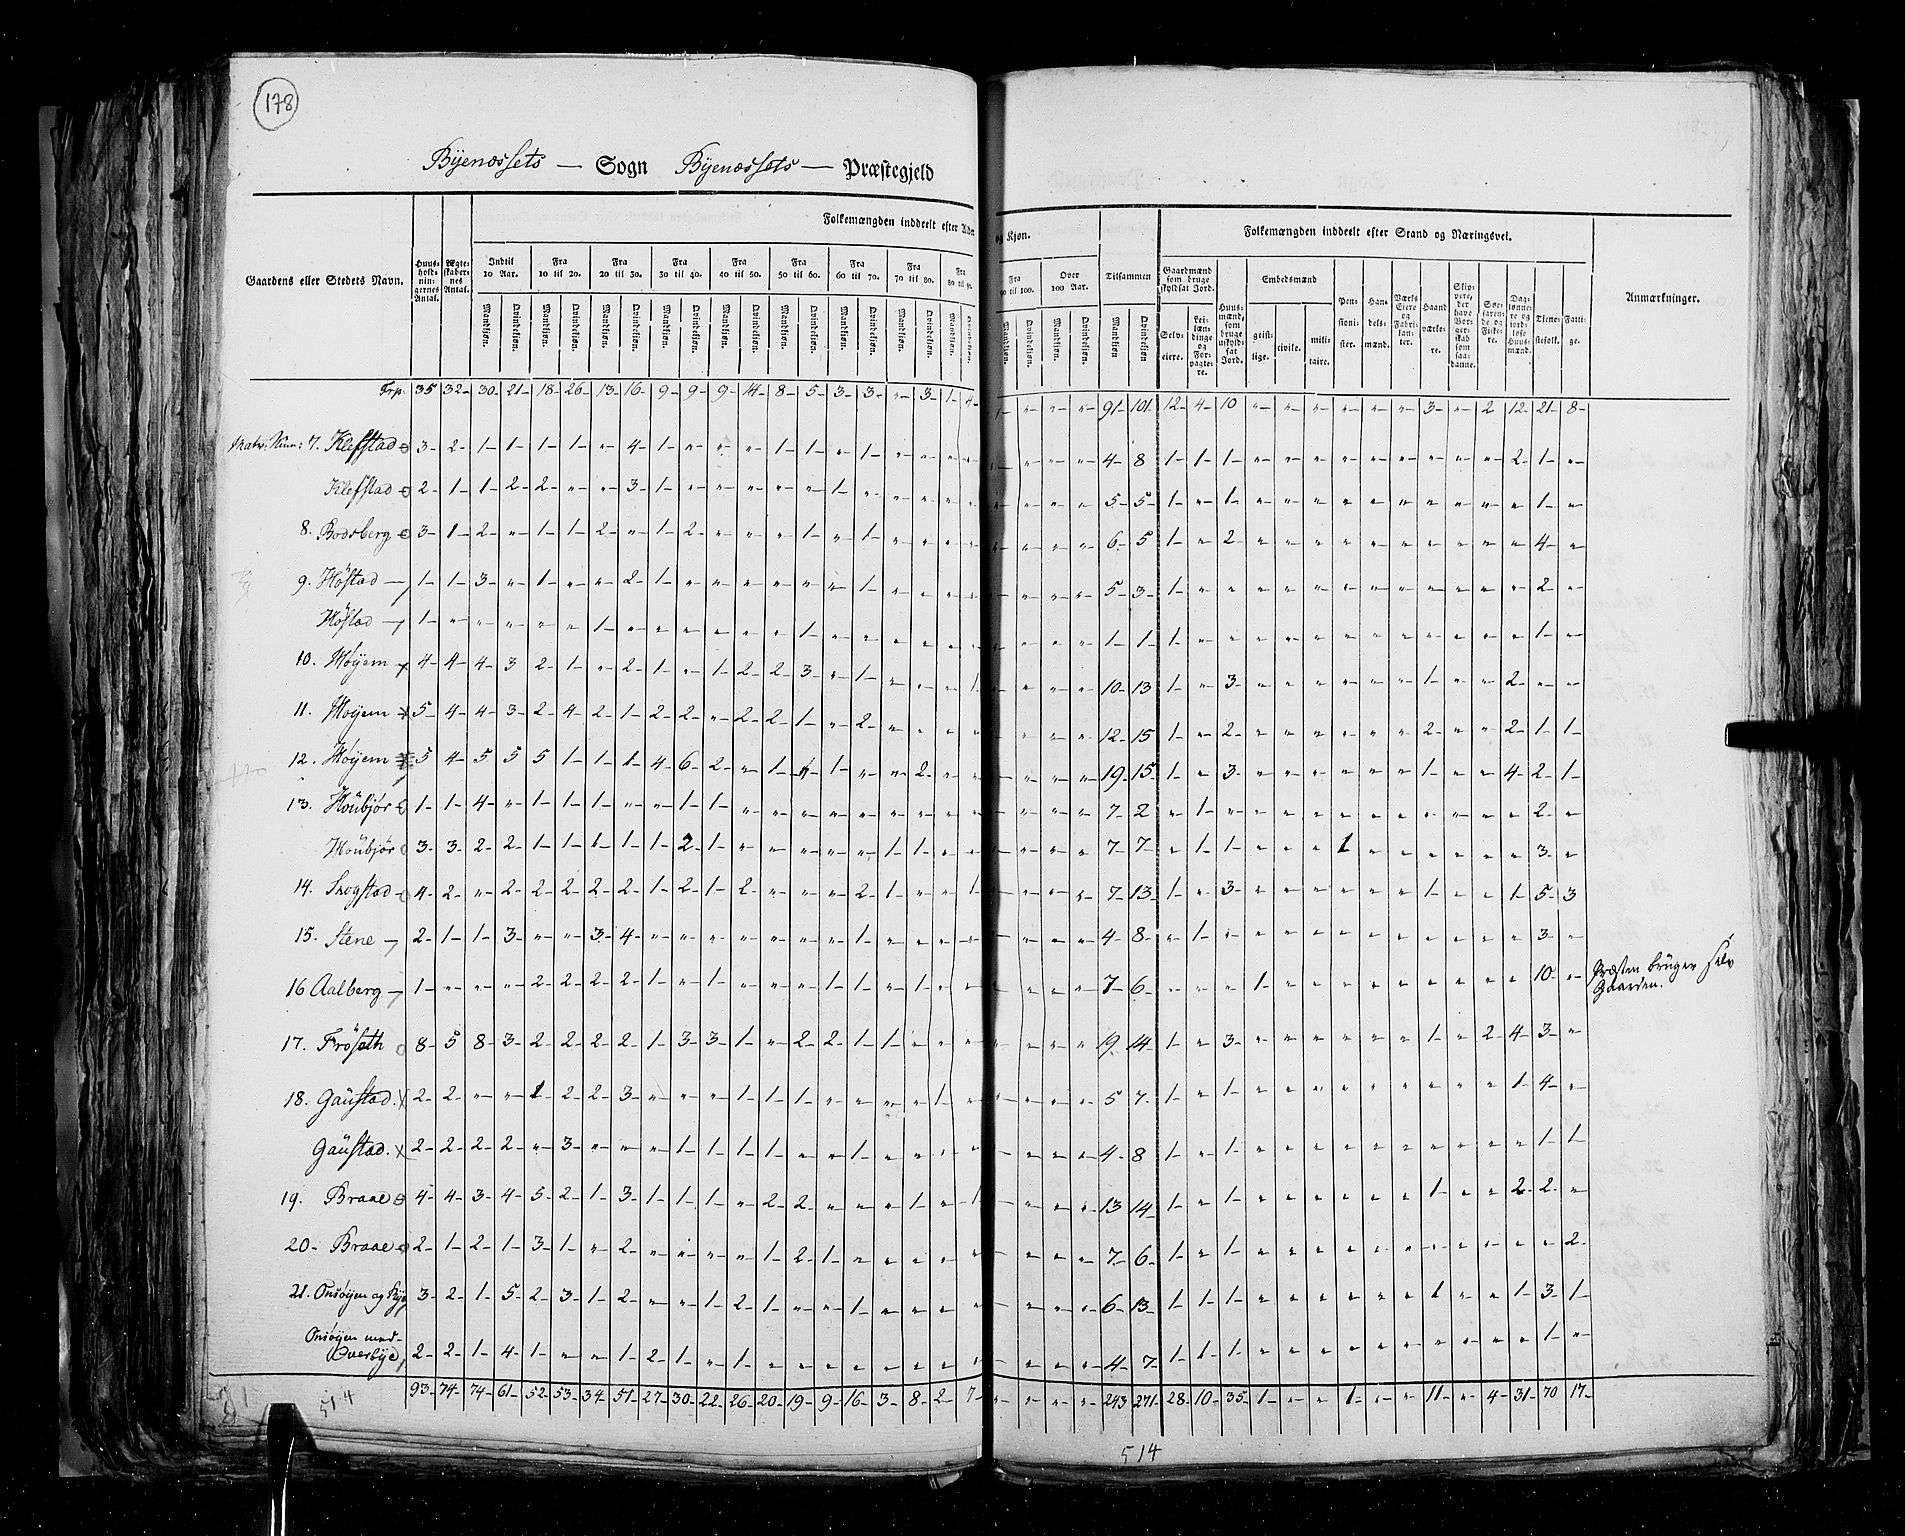 178
Byenæssets — Sogn Byenæssets — Præstegjeld
Folkemængden inddeelt efter Alder og Kjøn.
Folkemængden inddeelt efter Stand og Næringsvei.
Gaardens eller Stedets Navn.
Huus-holdningernes Antal.
Ægteskabernes Antal.
Indtil 10 Aar.
Fra 10 til 20.
Fra 20 til 30.
Fra 30 til 40.
Fra 40 til 50.
Fra 50 til 60.
Fra 60 til 70.
Fra 70 til 80.
Fra 80 til 90.
Fra 90 til 100.
Over 100 Aar.
Tilsammen
Gaardmænd som bruge skyldsat Jord.
Huusmænd, som bruge uskyldsat Jord.
Embedsmænd
Pensionister.
Handelsmænd.
Værks Eiere og Fabrikanter.
Haandværkere.
Skippere, der have Borgerskab som saadanne.
Søefarende og Fiskere.
Daglønnere og jordløse Huusmænd.
Tjenestefolk.
Fattige.
Anmærkninger.
Mandkjøn. Qvindekjøn.
Selveiere. Leilændinge og Forpagtere.
geistlige. civile. militaire.
Trp. 35 32 30 21 18 26 13 16 9 9 9 14 8 5 3 3 " 3 1 4 1 " " " 91 101 12 4 10 " " " " " " 3 " 2 12 21 8
Matr. Num: 7. Klefstad 3 2 1 1 1 1 " 4 1 " " " 1 1 " 1 " " " " " " " " 4 8 1 1 1 " " " " " " " " " 2 1 "
Klefstad 2 1 1 2 2 " " 3 1 " " " " " 1 " " " " " " " " " 5 5 1 " 1 " " " " " " " " " " 1 "
8. Bodsberg 3 1 2 " 1 1 2 " 1 2 " " " 1 " 1 " " " " " " " " 6 5 1 " 2 " " " " " " " " " " 4 "
9. Høstad 1 1 3 " 1 " " 2 1 " " " " " " 1 " " " " " " " " 5 3 1 " " " " " " " " " " " " 2 "
Høstad 1 " " " " " 1 " " " " " " 1 " " " " " " " " " " 1 1 1 " " " " " " " " " " " " 1 "
10. Høyem 4 4 4 3 2 1 " 2 1 " 1 2 2 3 " 1 " " " 1 " " " " 10 13 1 " 3 " " " " " " 1 " " 2 " "
11. Høyem 5 4 4 3 2 4 2 1 2 2 " 2 2 1 " 2 " " " " " " " " 12 15 1 " 2 " " " " " " 2 " " 2 1 1
12. Høyem 5 4 5 5 5 1 1 1 4 6 2 " 1 " 1 " " 2 " " " " " " 19 15 1 " 3 " " " " " " 1 " " 4 2 1
13. Houbjør 1 1 4 " 1 1 1 " " 1 1 " " " " " " " " " " " " " 7 2 " 1 " " " " " " " " " " " 2 "
Houbjør 3 3 2 2 1 1 1 1 1 2 1 " " " " " 1 1 " " " " " " 7 7 " 1 1 " " " 1 " " " " " " 3 "
14. Skogstad 4 2 " 2 2 2 2 2 1 2 1 2 " " " 2 1 " " 1 " " " " 7 13 1 " 3 " " " " " " 1 " " 1 5 3
15. Stene 2 1 1 3 " " 3 4 " " " " " " " 1 " " " " " " " " 4 8 " 1 " " " " " " " " " " " 3 "
16 Aalberg 1 " " " 2 2 2 2 1 " 1 " " " 1 1 " 1 " " " " " " 7 6 " " " 1 " " " " " " " " " 10 " Præsten bruger selv
Gaarden.
17. Frøseth 8 5 8 3 2 2 2 2 1 3 3 1 " 2 2 1 1 " " " " " " " 19 14 1 " 3 " " " " " " 1 " 2 4 3 "
18. Gaustad. 2 2 " " 1 2 2 3 " " " 1 1 1 " " " " 1 " " " " " 5 7 1 " 1 " " " " " " " " " 1 4 "
Gaustad. 2 2 2 2 " 3 " " " 1 1 1 1 " " 1 " " " " " " " " 4 8 1 " 1 " " " " " " " " " " 1 1
19. Braae 4 4 3 4 5 2 1 3 1 1 1 " 2 2 " " " 1 " 1 " " " " 13 14 1 " 1 " " " " " " 1 " " 2 2 "
20. Braae 2 1 2 1 3 1 " 2 " " " " 1 2 1 " " " " " " " " " 7 6 1 " 1 " " " " " " " " " " " 2
21. Onsøyen og Rye 3 2 1 5 2 3 1 2 " " 1 2 1 " " 1 " " " " " " " " 6 13 1 1 1 " " " " " " 1 " " 1 3 1
Onsøyen med
Overbye 2 2 1 4 1 " " 1 2 1 " 1 " " " " " " " " " " " " 4 7 1 1 1 " " " " " " " " " " 1 "
93 74 74 61 52 53 34 51 27 30 22 26 20 19 9 16 3 8 2 7 " " " " 243 271 28 10 35 1 " " 1 " " 11 " 4 31 70 17
514
514